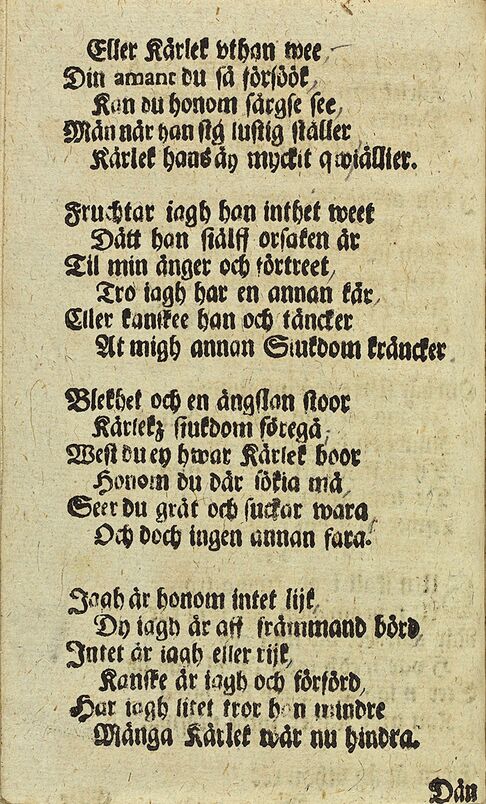 Eller Kärlek vthan wee,
Din amant du så försöök,
Kan du honom särgse see,
Män när han sig lustig ställer
Kärlek hans äy myckit qwiällier.
Fruchtar iagh han inthet weet
Dätt han siälff orsaken är
Til min ånger och förtreet,
Tro iagh har en annan kär,
Eller kanskee han och täncker
At migh annan Siukdom kräncker
Blekhet och en ängslan stoor
Kärlekz siukdom föregå,
West du ey hwar Kärlek boor
Honom du där sökia må,
Seer du gråt och suckar wara
Och doch ingen annan fara.
Jagh är honom intet lijk,
Dy iagh är aff främmand börd
Intet är iagh eller rijk,
Kanske är iagh och förförd,
Har iagh litet tror han mindre
Många Kärlek wår nu hindra.
Dän